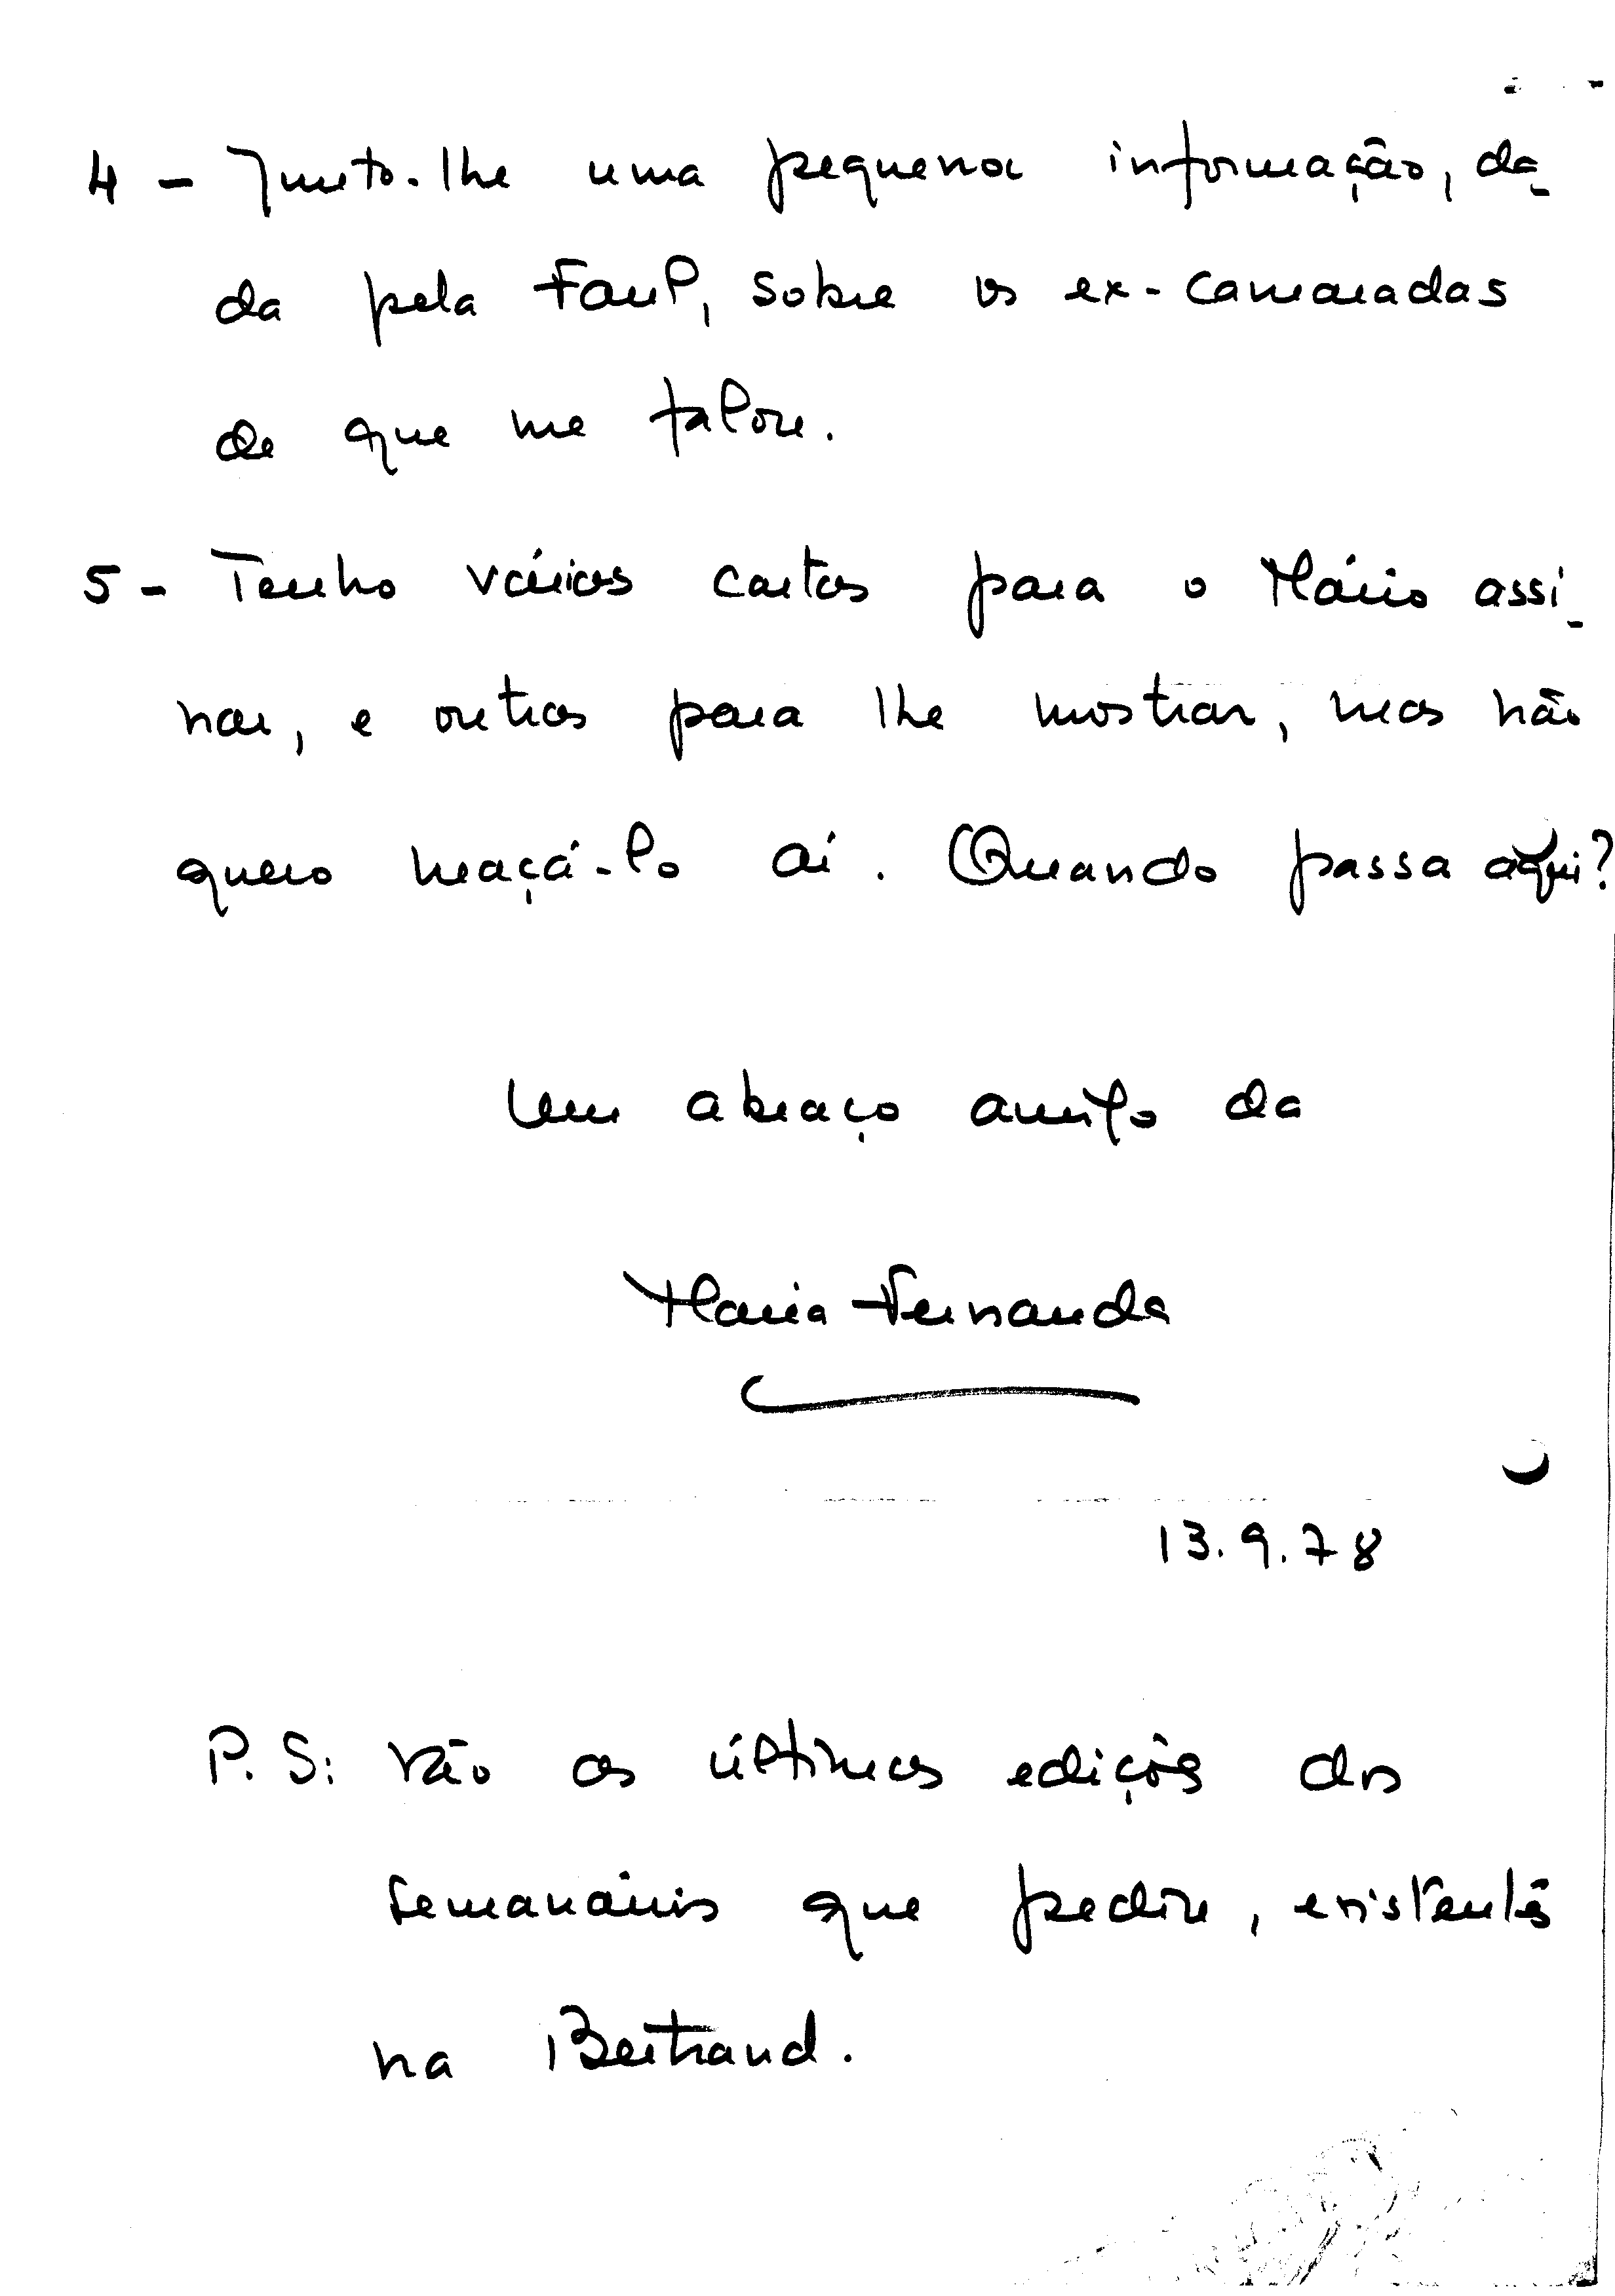 4 - Junto-lhe uma pequena informação, da-
da pela FauP, sobre os ex-camaradas
de que me falou.
5 - Tenho várias cartas para o Mário assi-
nar, e outras para lhe mostrar, mas não
quero maçá-lo aí. Quando passa aqui?
Um abraço amigo da
Maria Fernanda
13.9.78
P.S: Vão as últimas edições dos
semanários que pediu, existentes
na Bertrand.